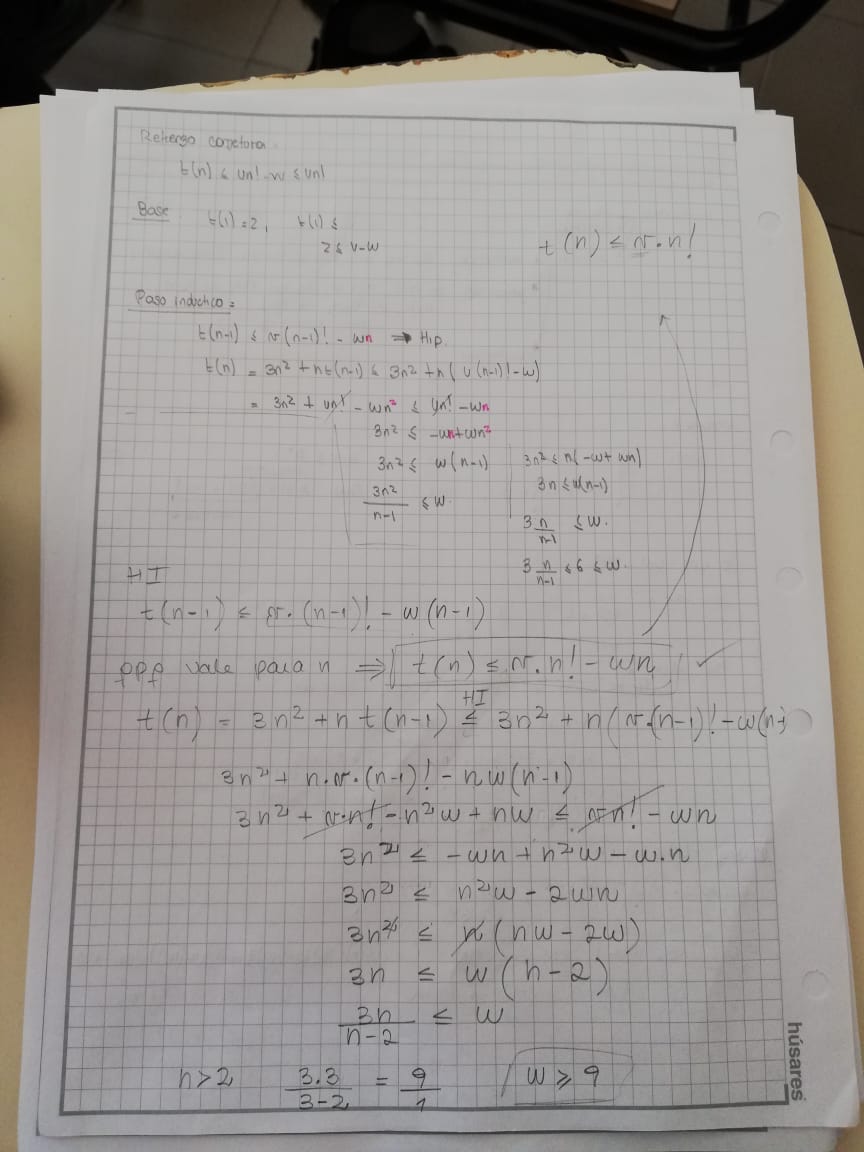 Refuerzo conjetura
t(n) ≤ vn! - w ≤ vn!
Base t(1) = 2, t(1) ≤
2 ≤ v-w
t(n) ≤ v.n!
Paso inductico =
t(n-1) ≤ v(n-1)! - wn ⇒ Hip.
t(n) = 3n² + nt(n-1) ≤ 3n² + n( v(n-1)! - w)
= 3n² + vn! - wn² ≤ vn! - wn
3n² ≤ -wn + wn²
3n² ≤ w(n-1)
3n²/n-1 ≤ w
3n² ≤ n(-w + wn)
3n ≤ w(n-1)
3 n/n-1 ≤ w.
3 n/n-1 ≤ 6 ≤ w
HI
t(n-1) ≤ v.(n-1)! - w(n-1)
ppq vale para n ⇒ t(n) ≤ v.n! - wn ✓
HI
t(n) = 3n² + n t(n-1) ≤ 3n² + n(v.(n-1)! - w(n-
3n² + n.v.(n-1)! - nw(n-1)
3n² + v.n! - n²w + nw ≤ vn! - wn
3n² ≤ -wn + n²w - w.n
3n² ≤ n²w - 2wn
3n² ≤ n(nw - 2w)
3n ≤ w(n-2)
3n/n-2 ≤ w
n>2 3.3/3-2 = 9/1 w ≥ 9
húsares